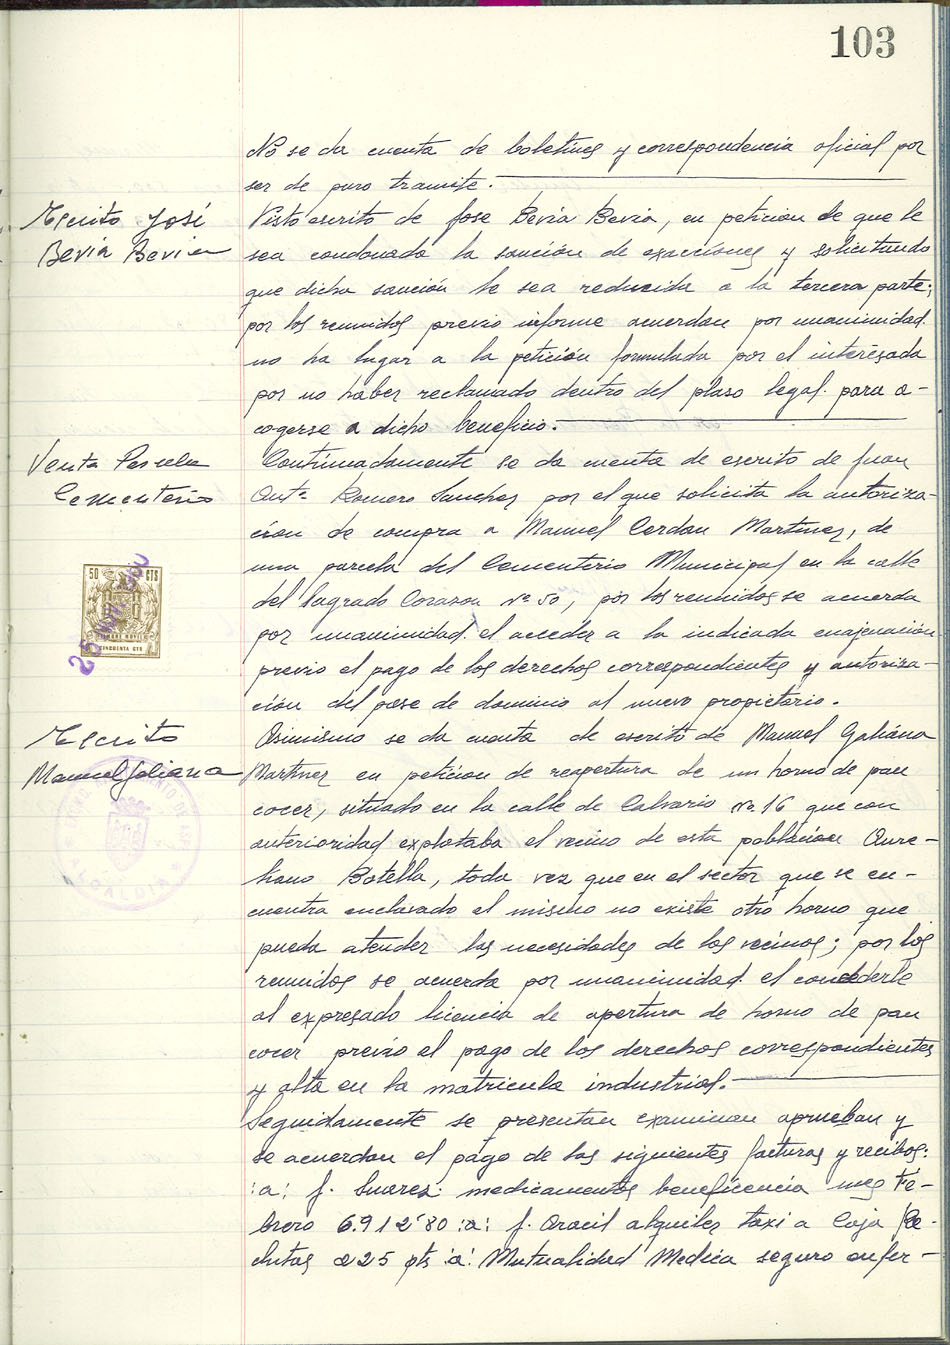 103
No se da cuenta de boletines y correspondencia oficial por
ser de puro tramite.
Escrito José
Beviá Bevia
Visto escrito de Jose Beviá Bevia, en peticion de que le
sea condonada la sanción de exacciones y solicitando
que dicha sanción le sea reducida a la tercera parte;
por los reunidos previo informe acuerdan por unanimidad
no ha lugar a la petición formulada por el interesada
por no haber reclamado dentro del plaso legal para a-
cogerse a dicho beneficio.
Venta Parcela
Cementerio
Continuadamente se da cuenta de escrito de Juan
Antº Romero Sanchez por el que solicita la autoriza-
cion de compra a Manuel Cerdan Martinez, de
una parcela del Cementerio Municipal en la calle
del Sagrado Corazon nº 50, por los reunidos se acuerda
por unanimidad el acceder a la indicada enajenación
previo el pago de los derechos correspondientes y autoriza-
ción del pase de dominio al nuevo propietario.
50 CTS
CINCUENTA CTS
25
Escrito
Manuel Galiana
ALCALDIA
Asimismo se da cuenta de escrito de Manuel Galiána
Martinez en peticion de reapertura de un horno de pan
cocer, situado en la calle de Calvario nº 16 que con
anterioridad explotaba el vecino de esta poblacion Aure-
liano Botella, toda vez que en el sector que se en-
cuentra enclavado el mismo no existe otro horno que
pueda atender las necesidades de los vecinos; por los
reunidos se acuerda por unanimidad el concederle
al expresado licencia de apertura de horno de pan
cocer previo el pago de los derechos correspondientes
y alta en la matricula industrial.
Seguidamente se presentan examinan aprueban y
se acuerdan el pago de las siguientes facturas y recibos:
:a: J. Suarez: medicamentos beneficencia mes Fe-
brero 6.912'80 :a: J. Aracil alquiler taxi a Caja Re-
clutas 225 pts :a: Mutualidad Medica seguro enfer-